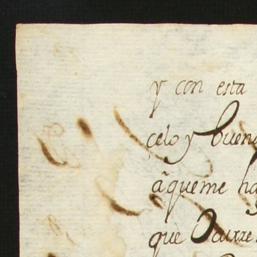 y con esta
çelo y buen
aqueme ha
que Ocurre